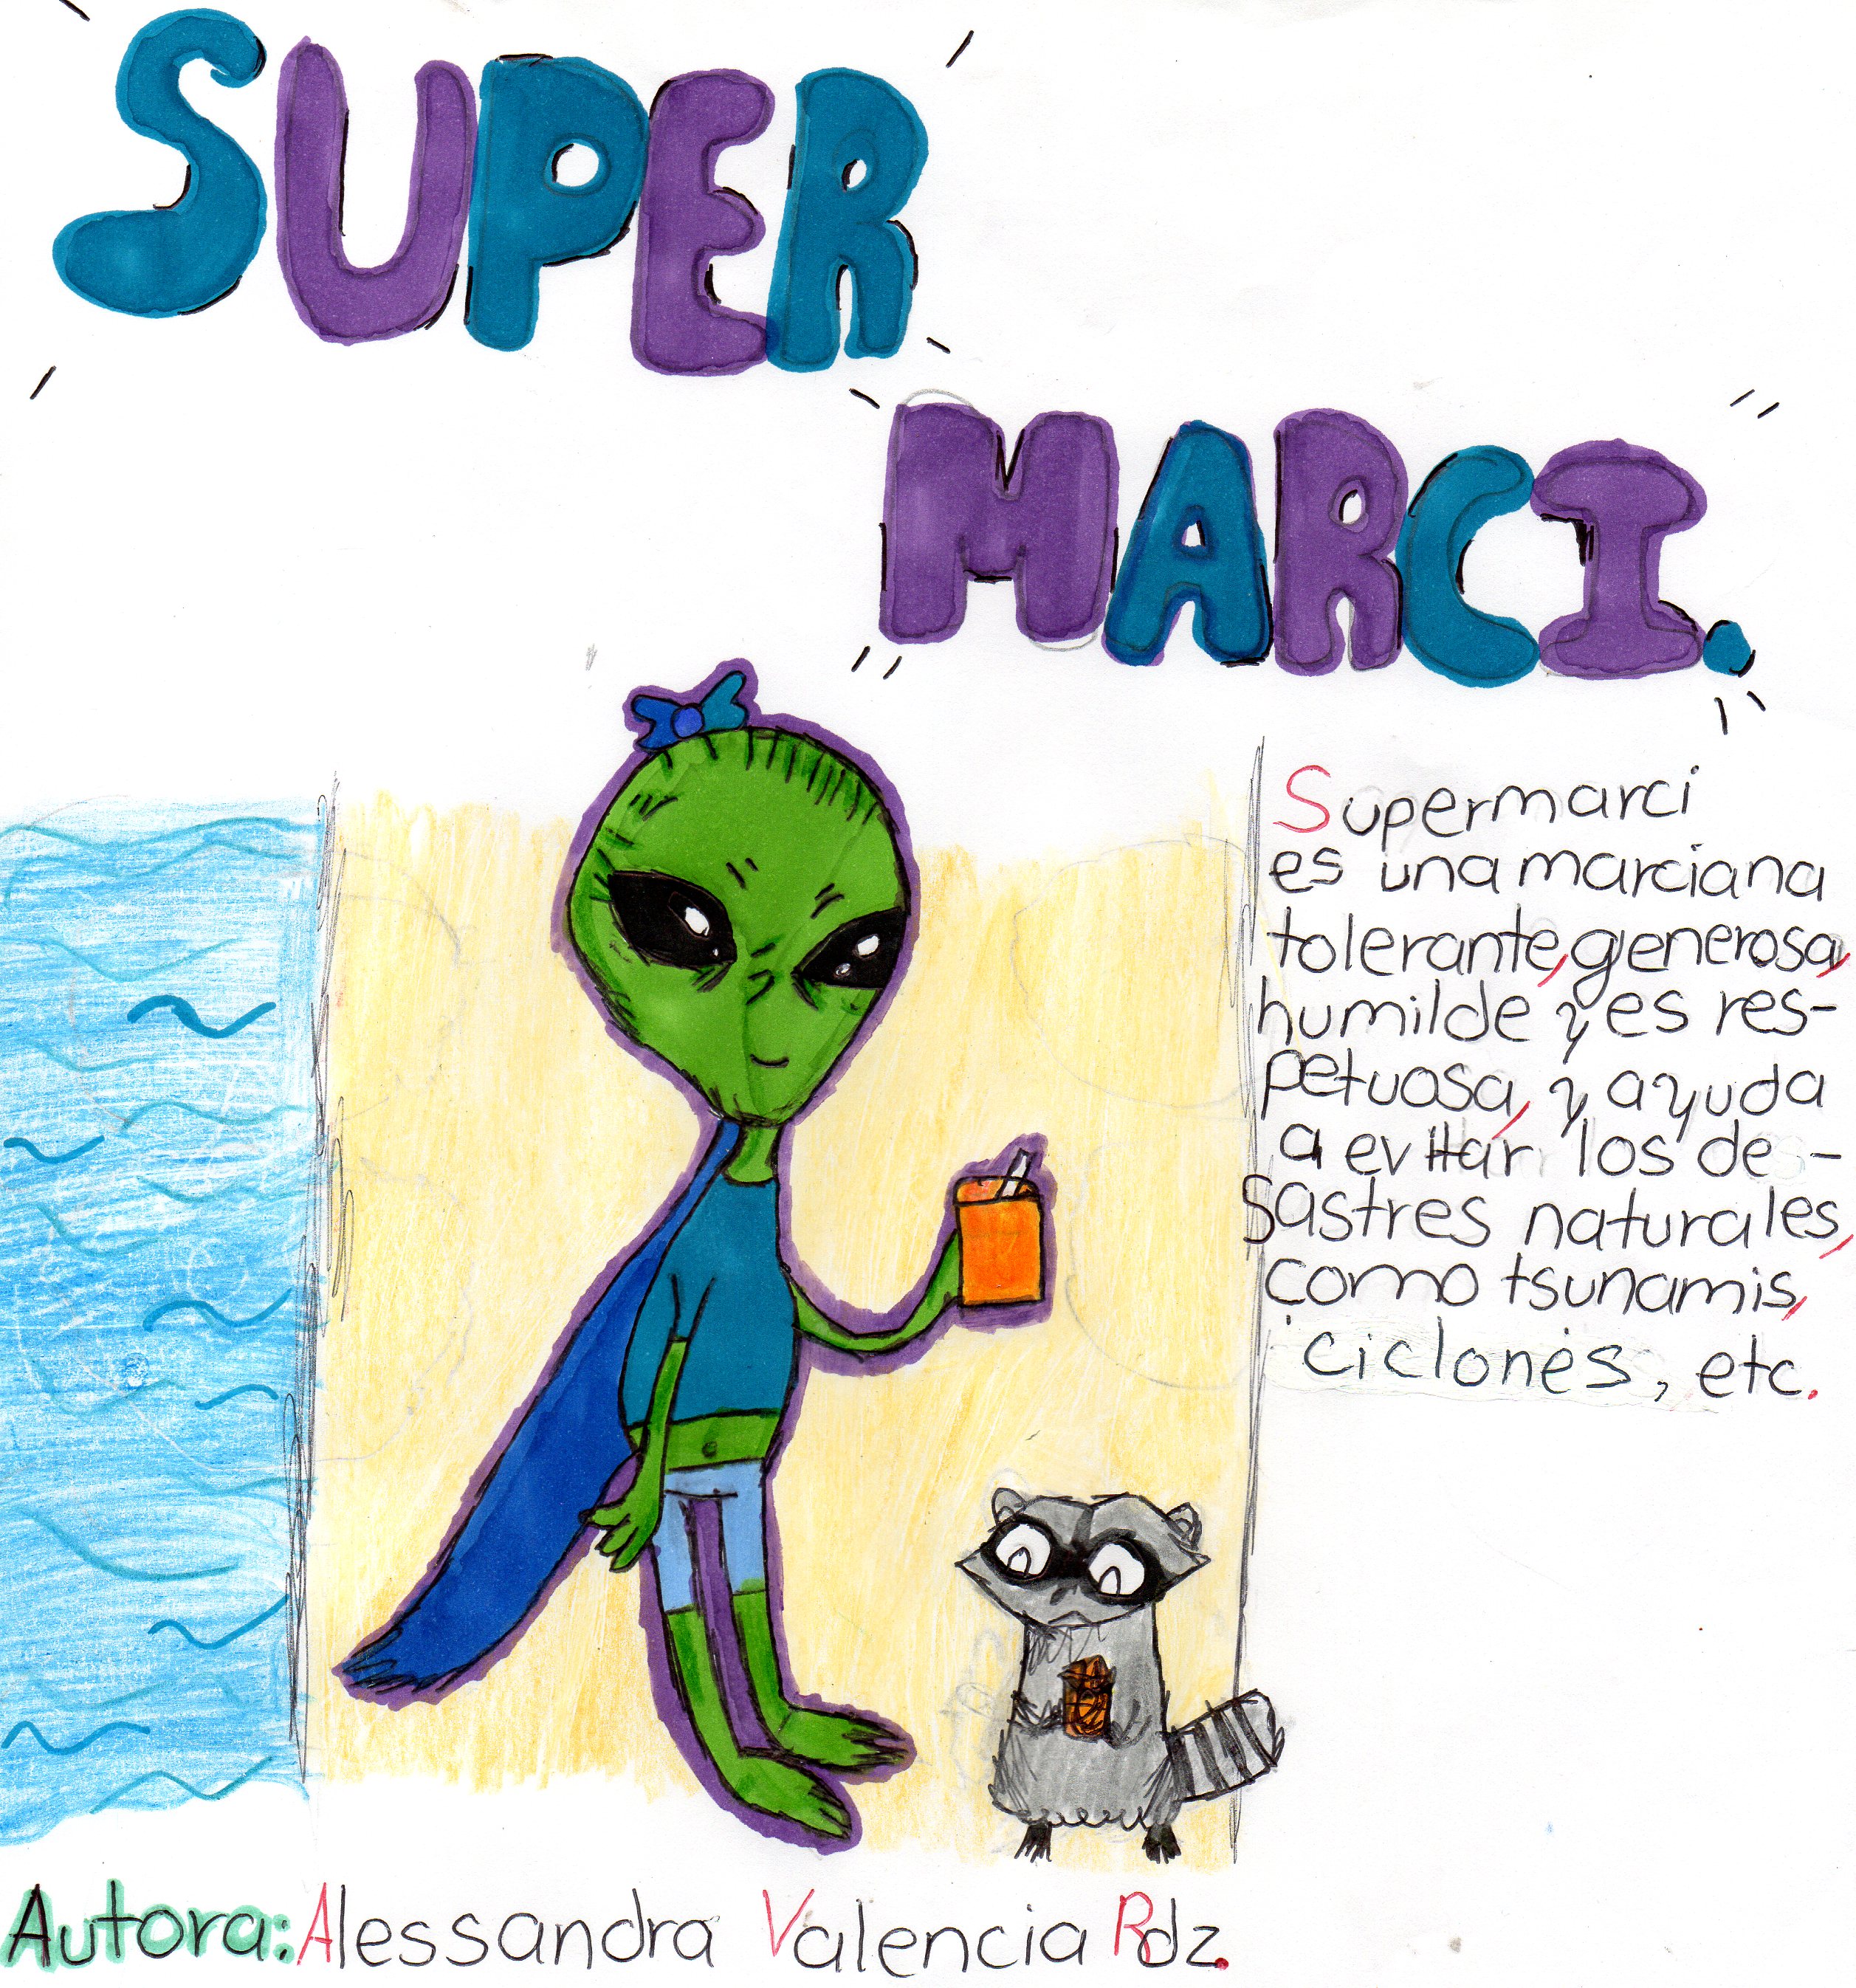 SUPER
MARCI.
Supermarci
es una marciana
tolerante, generosa,
humilde y es res-
petuosa, y ayuda
a evitar los de-
sastres naturales,
como tsunamis,
ciclones, etc.
Autora: Alessandra Valencia Rdz.